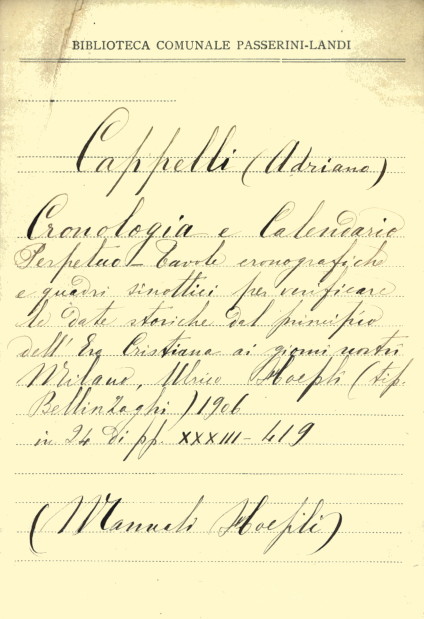 BIBLIOTECA COMUNALE PASSERINI-LANDI
Cappelli (Adriano)
Cronologia e Calendario
Perpetuo - Tavole cronografiche
e quadri sinottici per verificare
le date storiche dal principio
dell'Era Cristiana ai giorni nostri
Milano, Ulrico Hoepli (tip.
Bellinzaghi) 1906
in 24 di pp. XXXIII - 419
(Manuali Hoepli)